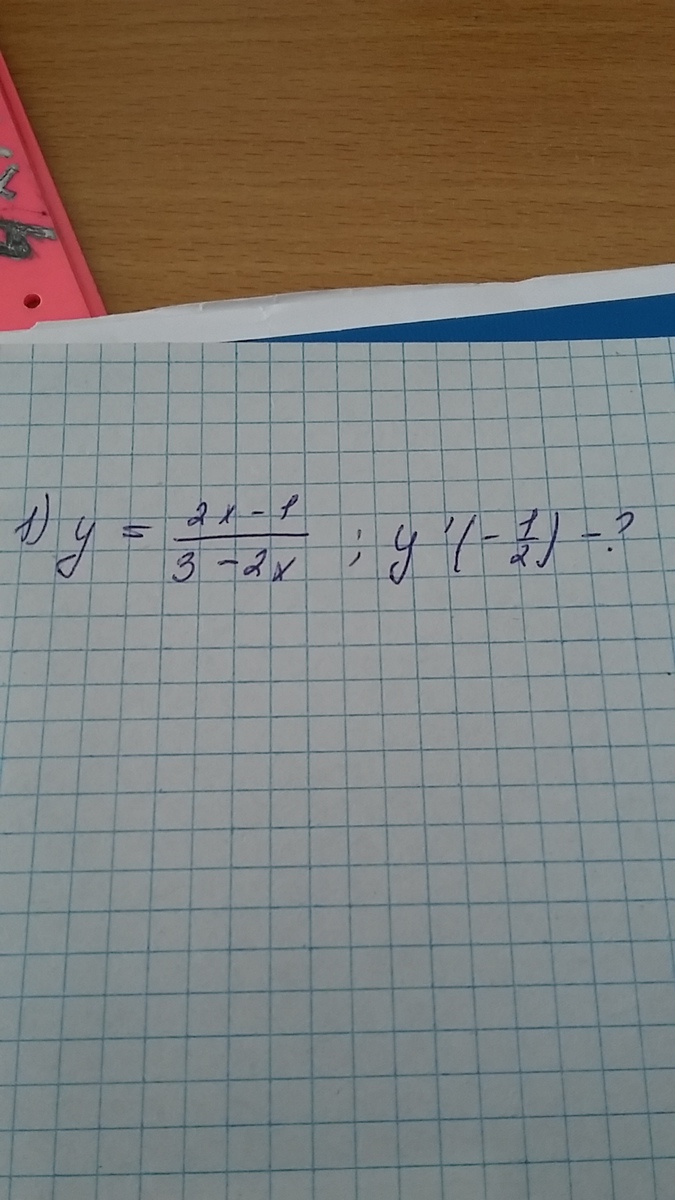 1) y = \frac{2x-1}{3-2x} ; y'(-\frac{1}{2}) - ?